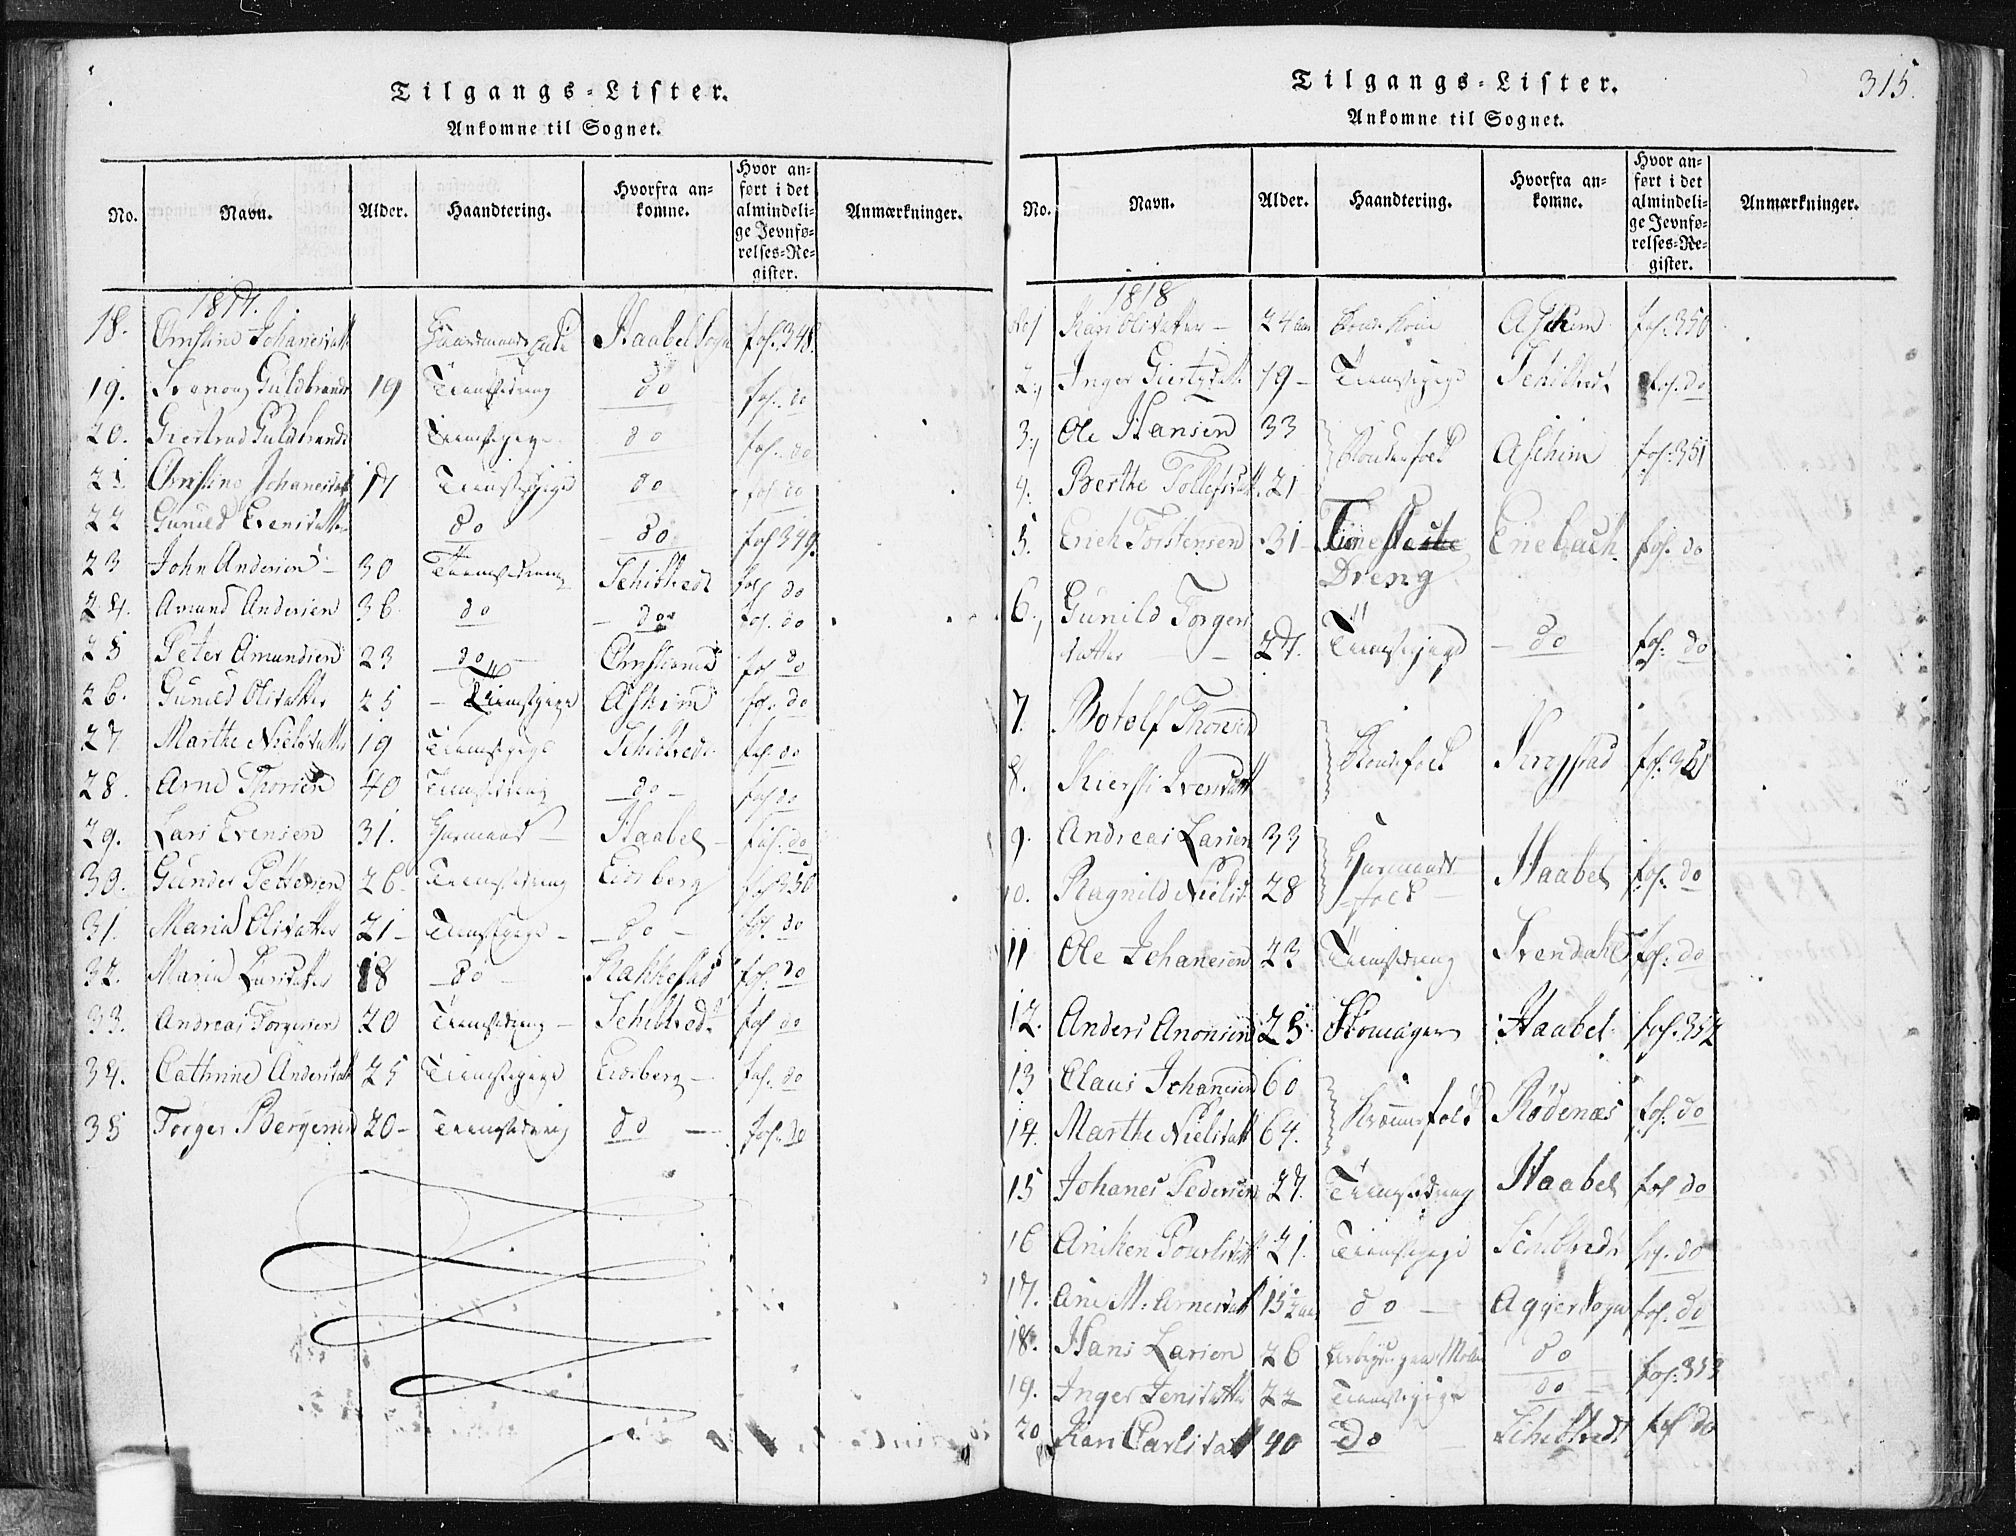 Tilgangs-Lister.
Ankomne til Sognet.
No. Navn. Alder. Haandtering. Hvorfra ankomne. Hvor anført i det almindelige Jevnførelses-Register. Anmærkninger.
1817.
18. Christine Johanesdatt Haabel Sogn fol. 348.
19. Guldbrands 19 Tienestedreng do fol. do
20. Giertrud Guldbrands Tienestepige do fol. do
21 Christine Johanesdatt 17 Tienestepige do fol. do
22 Gunild Evensdatter do do fol 349.
23 John Andersen 30 Tienestedreng Schibtvedt fol do
24. Amund Andersen 36 do do fol. do
25 Peter Amundsen 23 do Christiania fol do
26. Gunild Olsdatter 25 Tienestepige Askim fol. do
27 Marthe Nielsdatter 19 Tienestepige Schibtvedt fol. do
28. Arne Thorsen 40 Tienestedreng do fol do
29. Lars Evensen 31. Huusmand Haabel fol. do
30. Gunder Pettersen 26 Tienestedreng Eidsberg fol 350
31. Maria Olsdatter 21 Tienestepige do fol. do
32. Maria Larsdatter 18 do Rakkestad fol. do
33. Andreas Torgersen 20 Tienestedreng Schibtvedt fol do
34. Cathrine Andersdatt 25 Tienestepige Eidsberg fol. do
35 Torger Bergersen 20 Tienestedreng do fol. do
315.
Tilgangs-Lister.
Ankomne til Sognet.
No. Navn. Alder. Haandtering. Hvorfra ankomne. Hvor anført i det almindelige Jevnførelses-Register. Anmærkninger.
1818
No 1 Kari Olsdatter 24 Aar Bonde Kone Aschim fol. 350
2, Inger 19 Tienestepige Schibtvedt fol. do
3, Ole Hansen 33 Bondefolk Aschim fol. 351
4. Berthe Tollefsdatt. 21
5. Erich Torstensen 31 Tieneste Enebach fol. do
Dreng
6., Gunild Torgers
datter 27. Tienestepige do fol. do
7. Botolf Thorsen Bondefolk Krogstad fol. 351
8. Kiersti Iversdatt
9. Andreas Larsen 33 Huusmands Haabel fol. do
10. Ragnild Nielsd 28 folk
11 Ole Johanesen 23 Tienestedreng Trendahl fol. do
12. Anders Anonsen 25 Skomager Haabel fol. 352
13 Claus Johanesen 60 Rødenæs fol. do
14. Marthe Nielsdatt 64.
15 Johanes Pedersen 27. Tienestedreng Haabel fol do
16 Aniken Poulsdatt 21. Tienestepige Schibtvedt fol. do
17. Ane M: Arnesdatt 15½ Aar do Aggersogn fol. do
18. Hans Larsen 26 do fol. 353
19. Inger Jensdatter 22 Tienestepige do
20 Kari Carlsdatt 40 do Schibtvedt fol do